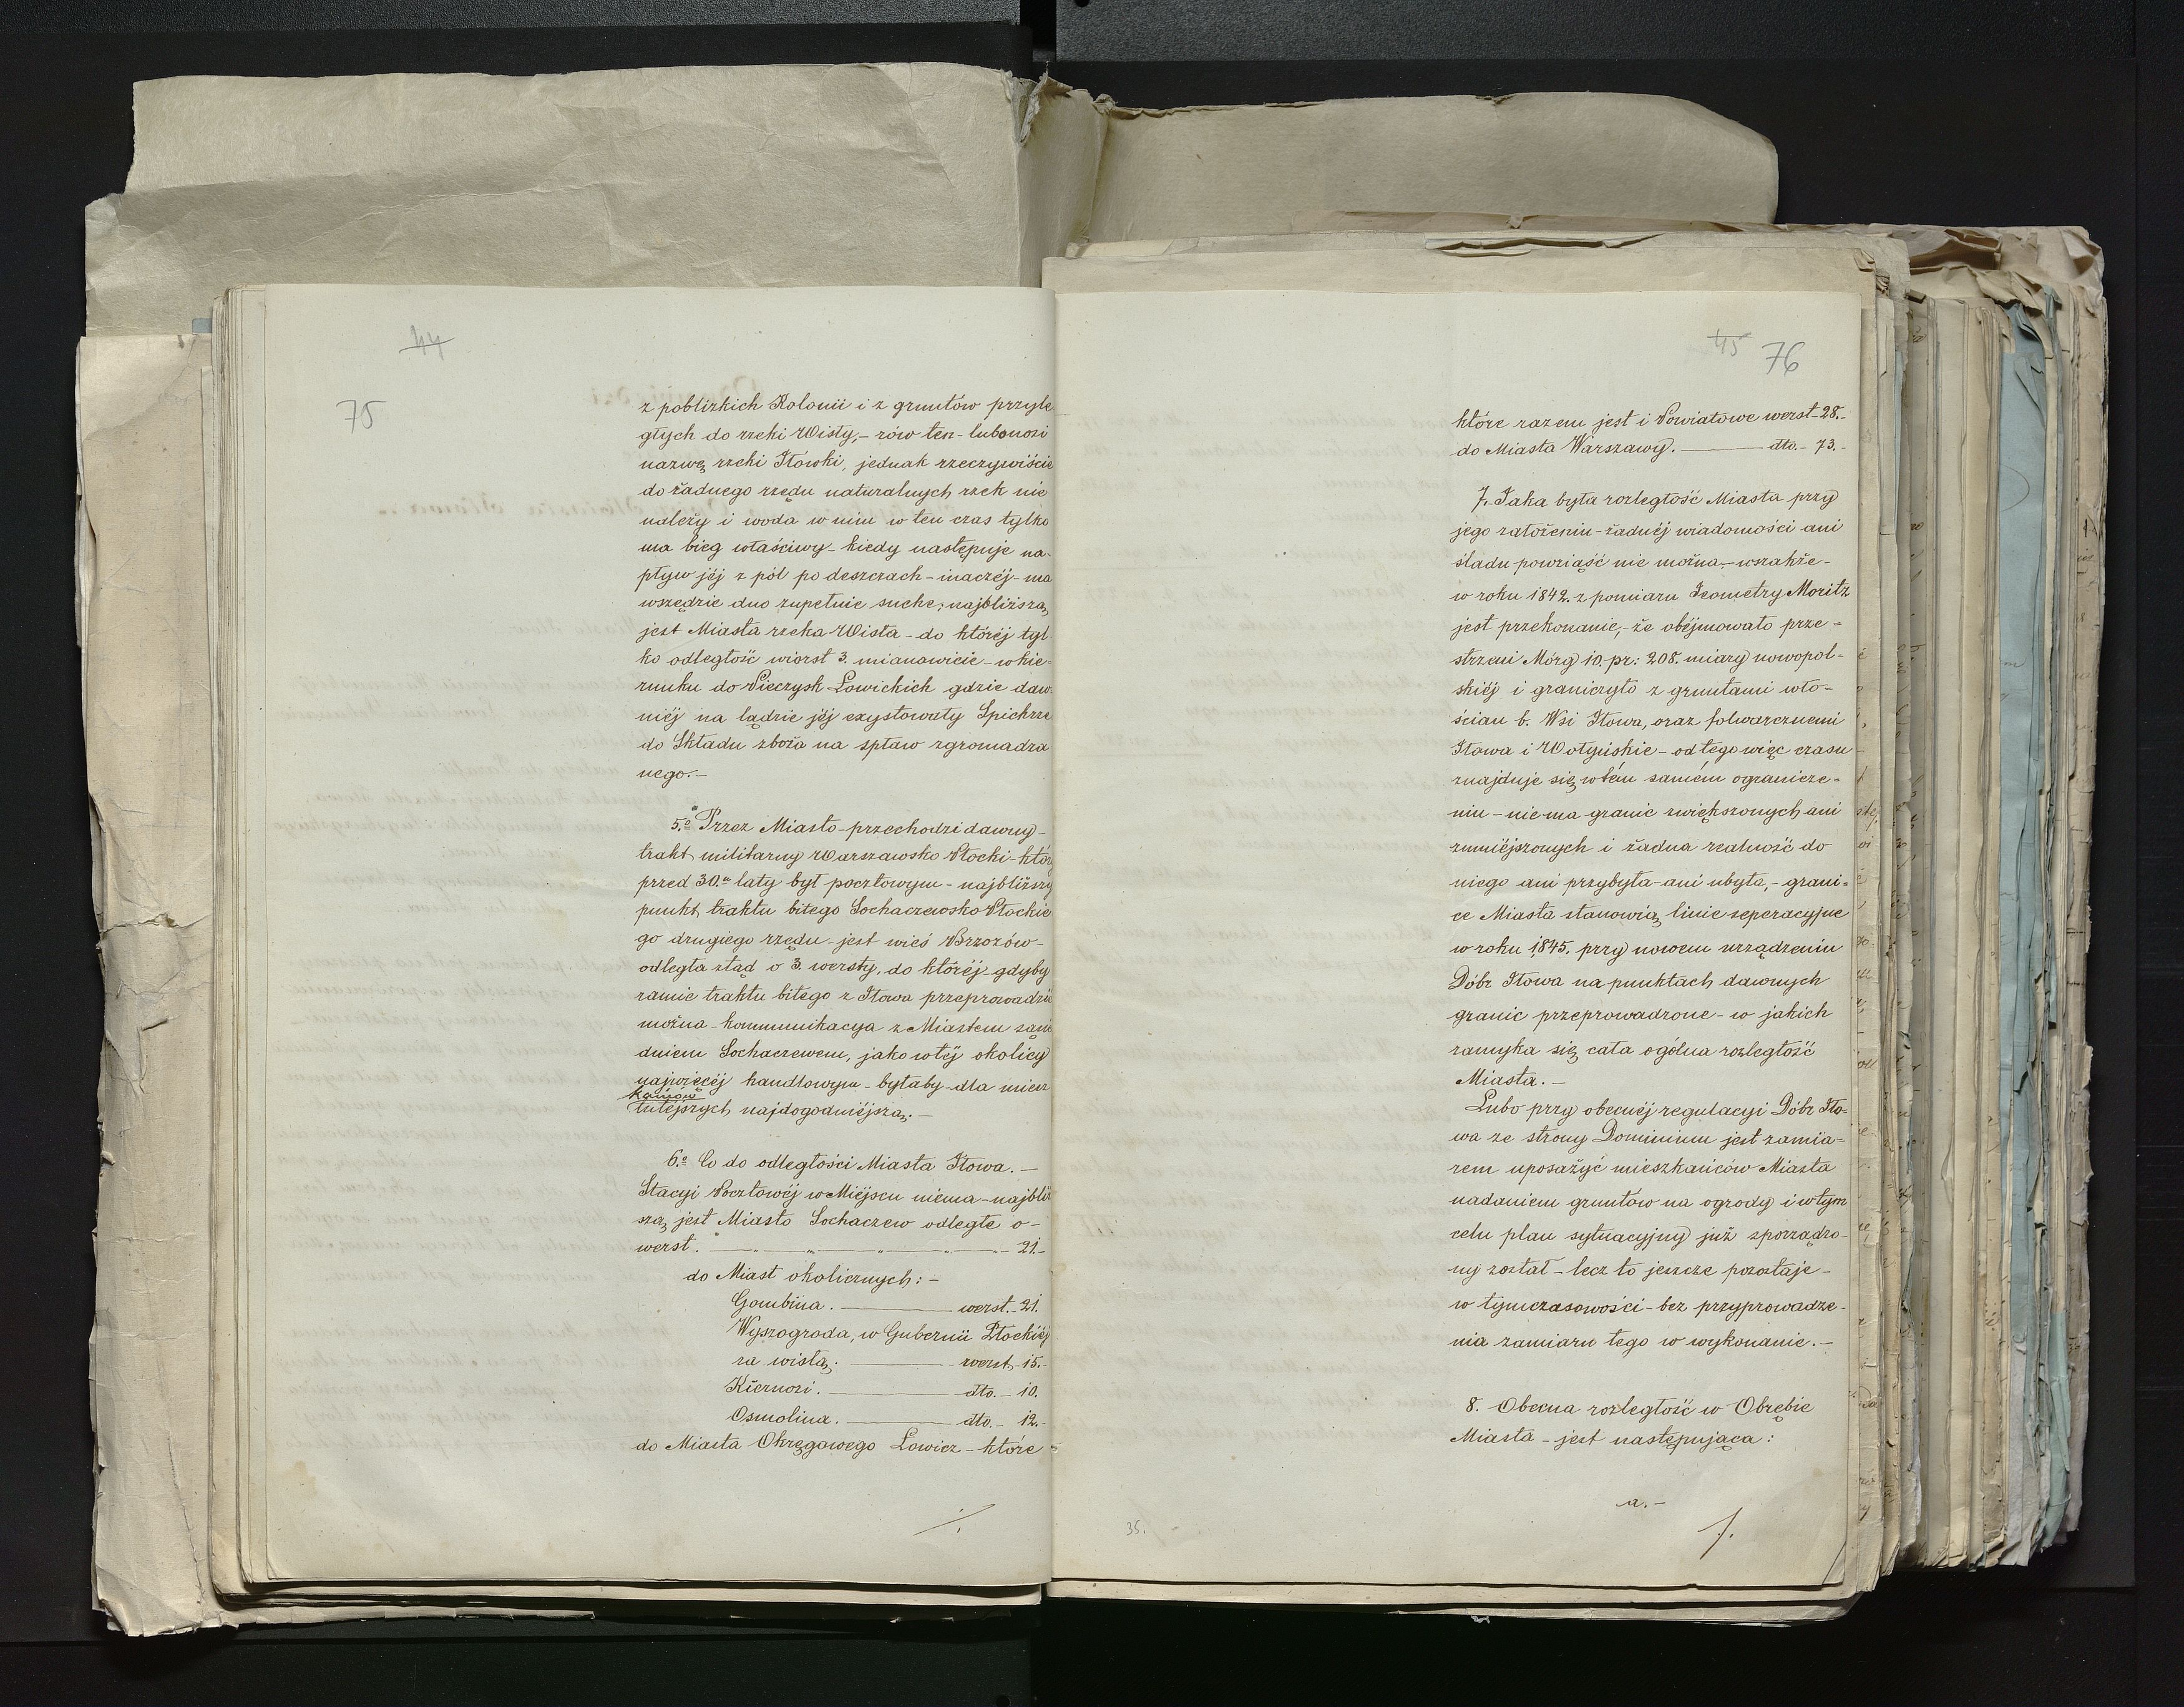 44
75
z poblizkich Kolonii i z gruntów przyle
głych do rzeki Wisły,- rów ten - lubo nosi
nazwę rzeki Iłowki, jednak rzeczywiście
do żadnego rzędu naturalnych rzek nie
należy i woda w nim w ten czas tylko
ma bieg właściwy - kiedy następuje na-
pływ jéj z pól po deszczach - inaczéj - ma
wszędzie dno zupełnie suche, najbliższą
jest Miasta rzeka Wisła - do któréj tyl
ko odległość wiorst 3. mianowicie - w kie-
runku do Pieczysk Łowickich gdzie daw-
niéj na lądzie jéj exystowały Spichrze
do Składu zboża na spław zgromadza
nego.-
5.o Przez Miasto - przechodzi dawny -
trakt militarny Warszawsko Płocki - któr
przed 30.u laty był pocztowym - najbliższy
punkt, traktu bitego Sochaczewsko Płockie
go drugiego rzędu - jest wieś Brzozów -
odległa ztąd o 3. wersty, do któréj gdyby
ramie traktu bitego z Iłowa przeprowadzić
można - kommunikacya z Miastem sąsie
dniem Sochaczewem, jako w téj okolicy
najwięcéj handlowym - byłaby dla miesz
kańców
tutéjszych najdogodniéjszą.-
6.o Co do odległości Miasta Iłowa.-
Stacyi Pocztowéj w Miéjscu niema - najbliż
szą, jest Miasto Sochaczew odległe o -
werst. - " - " - " - " - 21.-
do Miast okolicznych:-
Gombina. - werst. - 21.
Wyszogroda, w Gubernii Płockiéj
za wisłą. - werst. - 15.-
Kiernozi. - dto. - 10.
Osmolina. - dto. - 12.-
do Miasta Okręgowego Łowicz - które
/.
45 76
które razem jest i Powiatowe werst - 28.-
do Miasta Warszawy. - dto. - 73.-
7. Jaka była rozległość Miasta przy
jego założeniu - żadnéj wiadomości ani
śladu powziąść nie można, - wszakże -
w roku 1842. z pomiaru Jeometry Moritz
jest przekonanie, - że obéjmowało prze =
strzeni Mórg 10. pr: 208. miary nowopol =
skiéj i graniczyło z gruntami wło =
ścian b. Wsi Iłowa, oraz folwarcznemi
Iłowa i Wołyńskie - od tego więc czasu
znajduje się w tém samém ogranicze =
niu - nie ma granic zwiększonych ani
zmniéjszonych i żadna realność do
niego ani przybyła - ani ubyła, - grani =
ce Miasta stanowią linie seperacyjne
w roku 1845. przy nowem urządzeniu
Dóbr Iłowa na punktach dawnych
granic przeprowadzone - w jakich
zamyka się cała ogólna rozległość
Miasta.-
Lubo przy obecnéj regulacyi Dóbr Iło=
wa ze strony Dominium jest zamia =
rem uposażyć mieszkańców Miasta
nadaniem gruntów na ogrody i w tym
celu plan sytuacyjny już sporządzo -
ny został - lecz to jeszcze pozostaje -
w tymczasowości - bez przyprowadze -
nia zamiaru tego w wykonanie.-
8. Obecna rozległość w Obrębie
Miasta - jest następująca:
a.-
/.
35.